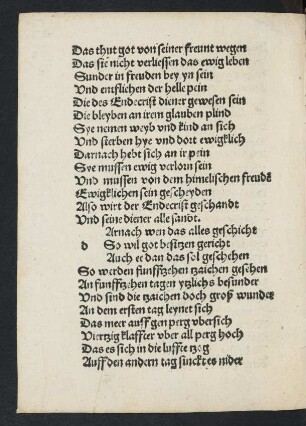 Das thut got von seiner freunt wegen
Das sie nicht verliessen das ewig leben
Sunder in freuden bey yn sein
Und entflichen der helle pein
Die des Endecrist diener gewesen sein
Die bleyben an irem glauben plind
Sye nemen weyb und kind an sich
Und sterben hye und dort ewigklich
Darnach hebt sich an ir pein
Sye mussen ewig verlorn sein
Und mussen von dem himelischen freudē
Ewigklichen sein gescheyden
Also wirt der Endecrist geschandt
Und seine diener alle sandt.
Arnach wen das alles geschicht
d So wil got besitzen gericht
Auch ee dan das sol geschehen
So werden funffzehen tzaichen gesehen
An funffzehen tagen ytzlichs besunder
Und sind die tzaichen doch groß wunder
An dem ersten tag leynet sich
Das meer auff gen perg ubersich
Viertzig klaffter uber all perg hoch
Das es sich in die luffte tzog
Auff den andern tag sinckt es nider